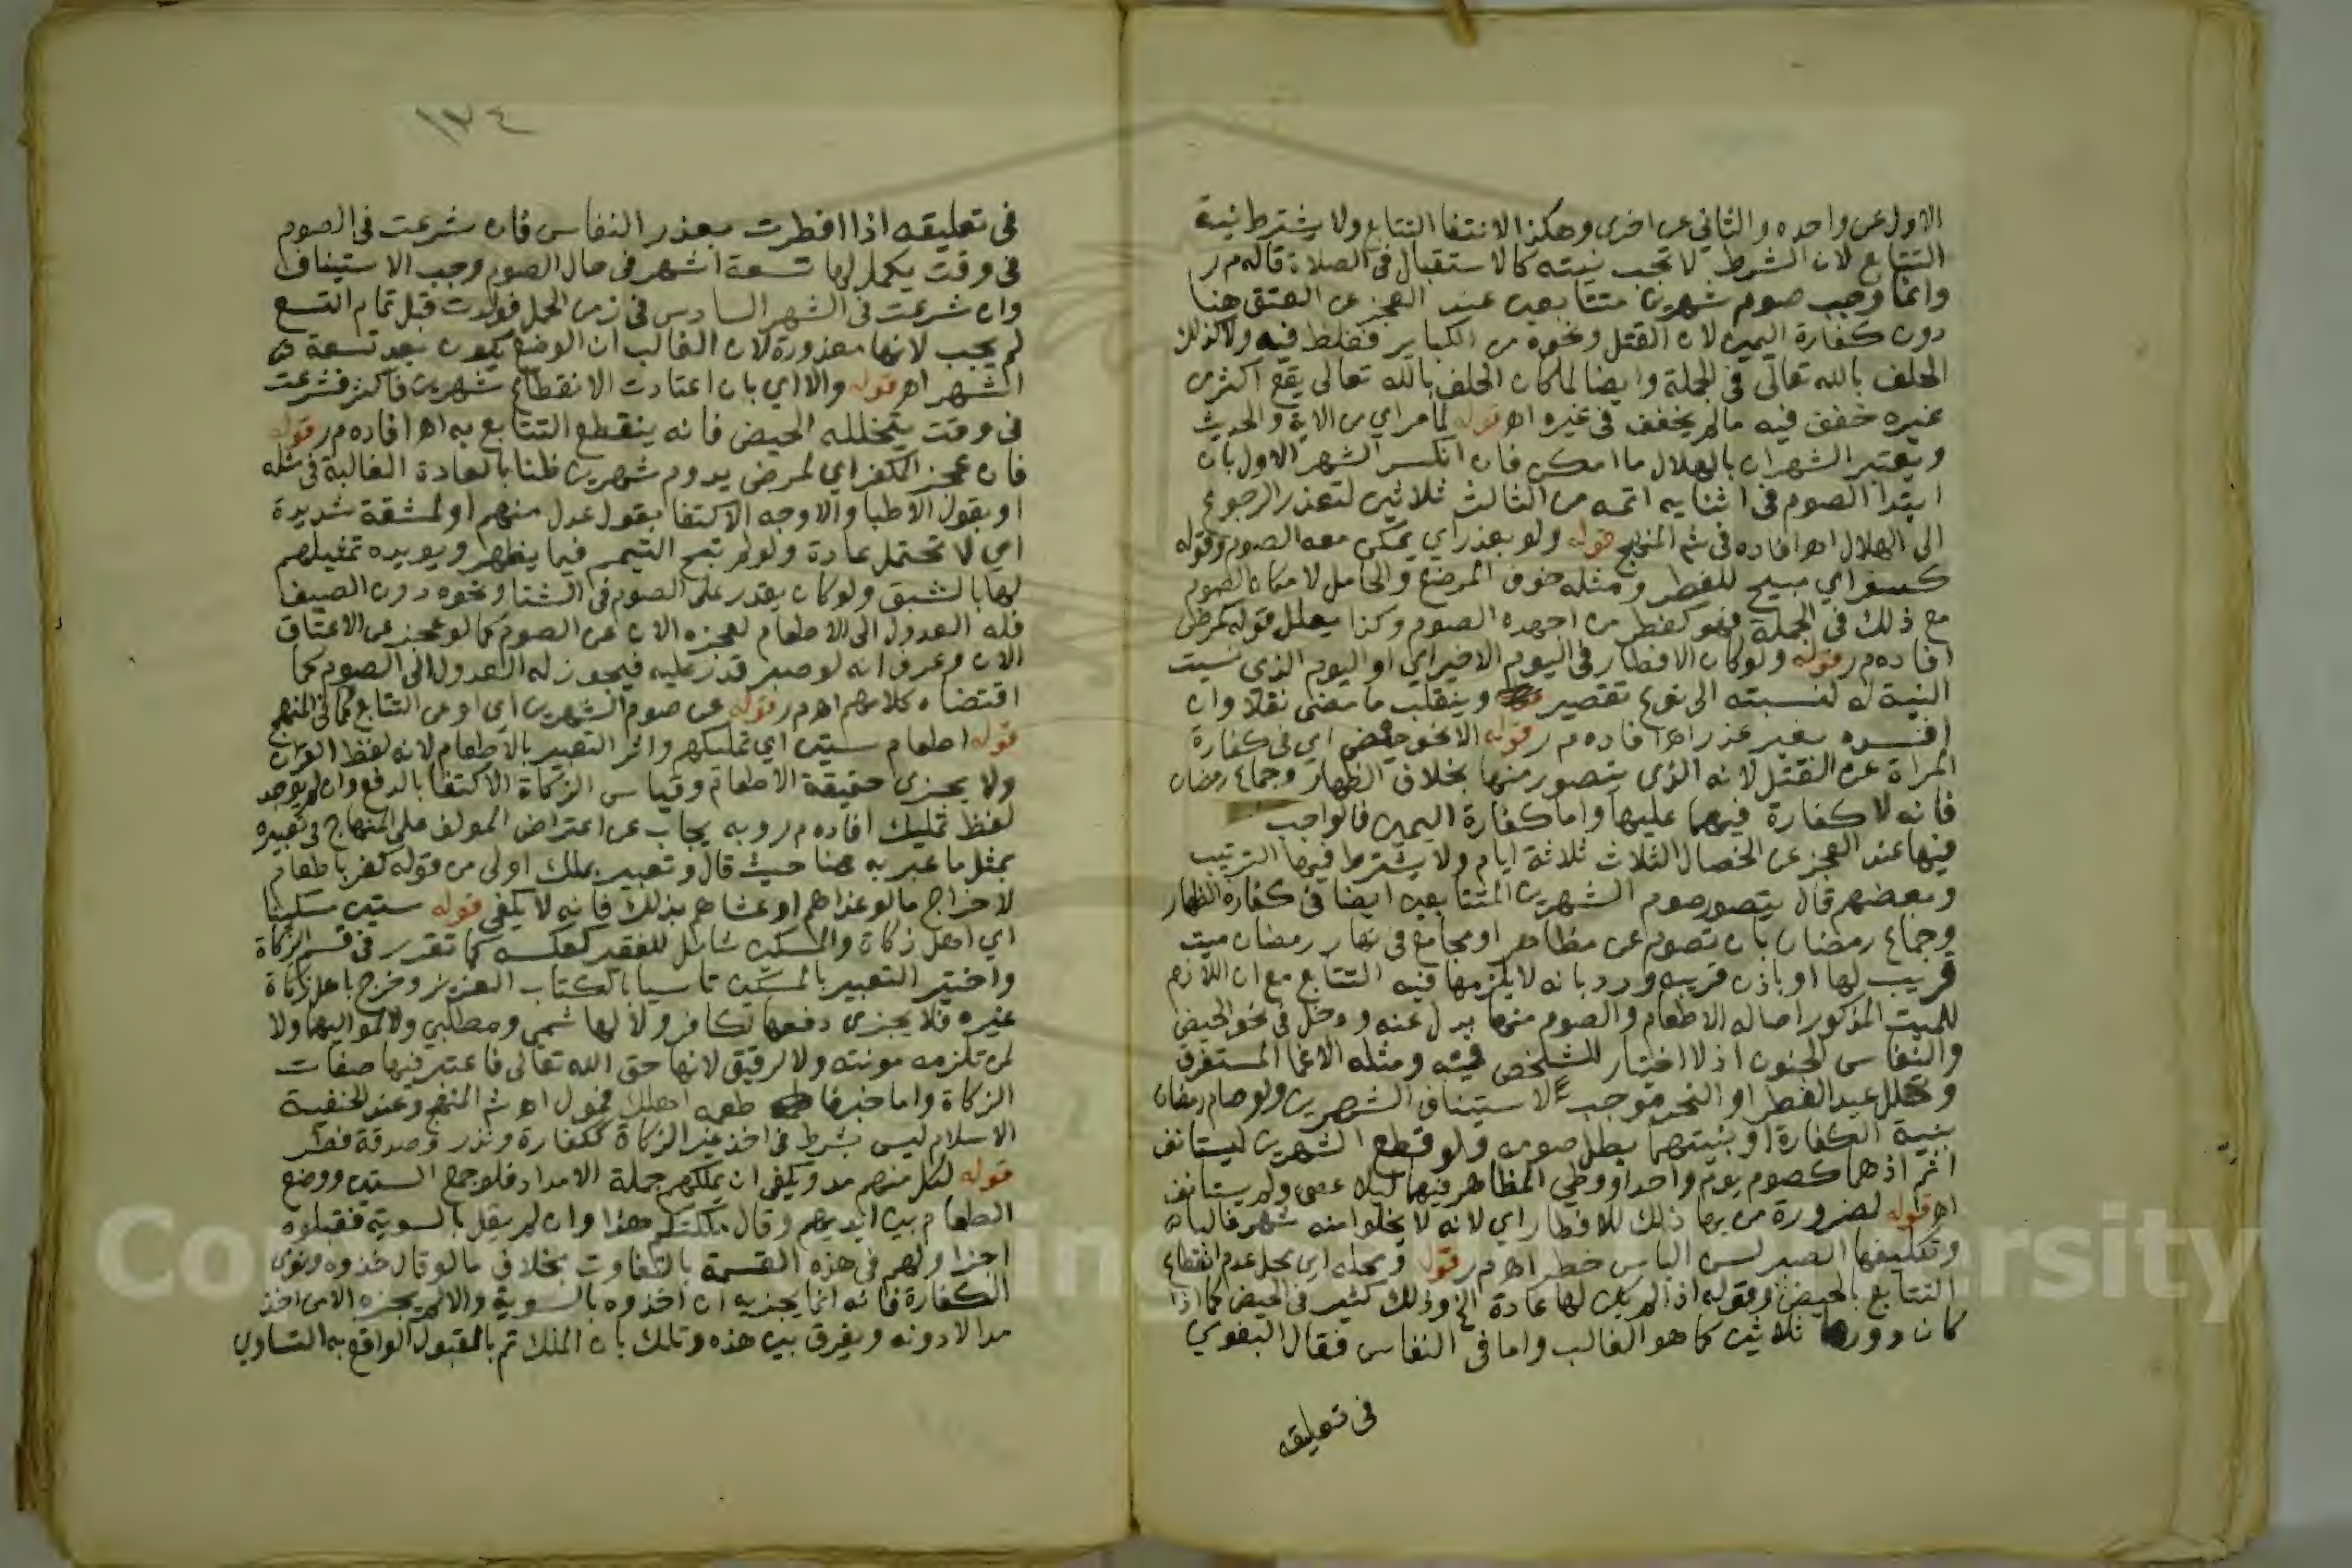 الاول عن واحده والثاني عن اخرى وهكذا الانتفا التتابع ولا يشترط نية
التتابع لان الشرط لا تجب نيته كالاستقبال في الصلاة قاله م ر
وانما وجب صوم شهرين متتابعين عند العجز عن العتق هنا
دون كفارة اليمين لان القتل ونحوه من الكباير فغلظ فيه ولا كذلك
الحلف بالله تعالى في الجملة وايضا لما كان الحلف بالله تعالى يقع اكثر من
غيره خفف فيه مالم يخفف في غيره اه قوله لما مر اي من الاية والحديث
ويعتبر الشهران بالهلال ما امكن فان انكسر الشهر الاول بان
ابتدا الصوم في اثنايه اتمه من الثالث ثلاثين لتعذر الرجوع
الى الهلال اه افاده في شم المنهج قوله ولو بعذر اي يمكن معه الصوم وقوله
كسفر اي مبيح للفطر ومثله خوف المرضع والحامل لامكان الصوم
مع ذلك في الجملة فهو كفطر من اجهده الصوم وكذا يعلل قوله كمرض
افاده م ر قوله ولو كان الافطار في اليوم الاخير اي او اليوم الذي نسيت
النية له لنسبته الى نوع تقصير وينقلب ما مضى نفلا وان
افسده بغير عذر اه افاده م ر قوله الا نحو حيض اي في كفارة
المراة عن القتل لانه الذي يتصور منها بخلاف الظهار وجماع رمضان
فانه لا كفارة فيهما عليها واما كفارة اليمين فالواجب
فيها عند العجز عن الخصال الثلاث ثلاثة ايام ولا يشترط فيها الترتيب
وبعضهم قال يتصور صوم الشهرين المتتابعين ايضا في كفارة الظهار
وجماع رمضان بان تصوم عن مظاهر او مجامع في نهار رمضان ميت
قريب لها او باذن قريبه ورد بانه لا يلزمها فيه التتابع مع ان اللازم
للميت المذكور اصاله الاطعام والصوم منها بدل عنه ودخل في نحو الحيض
والنفاس الجنون اذ لا اختيار للشخص فيه ومثله الاغما المستغرق
وتخلل عيد الفطر او النحر موجب لاستيناف الشهرين ولو صام رمضان
بنية الكفارة او بنيتهما بطل صومه ولو قطع الشهرين ليستانف
اثم اذ هما كصوم يوم واحد او وطي المظاهر فيهما ليلا عصى ولم يستانف
اه قوله لضرورة من بها ذلك للافطار اي لانه لا يخلوا منه شهر غالبا
وتكليفها الصبر لسن الياس خطر اه م ر قوله ومحله اي محل عدم انقطاع
التتابع بالحيض وقوله اذا لم يكن لها عادة الخ وذلك كثير في الحيض كما اذا
كان دورها ثلاثين كما هو الغالب واما في النفاس فقال البغوي
في تعليقه
١٧٤
في تعليقه اذا افطرت بعذر النفاس فان شرعت في الصوم
في وقت يكمل لها تسعة اشهر في حال الصوم وجب الاستيناف
وان شرعت في الشهر السادس في زمن الحمل فولدت قبل تمام التسع
لم يجب لانها معذورة لان الغالب ان الوضع يكون بعد تسعة
اشهر اه قوله والا اي بان اعتادت الانقطاع شهرين فاكثر فشرعت
في وقت يتخلله الحيض فانه ينقطع التتابع به اه افاده م ر قوله
فان عجز المكفر اي لمرض يدوم شهرين ظنا بالعادة الغالبة في مثله
او بقول الاطبا والاوجه الاكتفا بقول عدل منهم او لمشقة شديدة
اي لا تحتمل عادة ولو لم تبح التيمم فيما يظهر ويويده تمثيلهم
لها بالشبق ولو كان يقدر على الصوم في الشتا ونحوه دون الصيف
فله العدول الى الاطعام لعجزه الان عن الصوم كما لو عجز عن الاعتاق
الان وعرف انه لو صبر قدر عليه فيجوز له العدول الى الصوم كما
اقتضاه كلامهم اه م ر قوله عن صوم الشهرين اي او عن التتابع كما في المنهج
قوله اطعام ستين اي تمليكهم واثر التعبير بالاطعام لانه لفظ القران
ولا يجزى حقيقة الاطعام وقياس الزكاة الاكتفا بالدفع وان لم يوجد
لفظ تمليك افاده م ر وبه يجاب عن اعتراض المولف على المنهاج في تعبيره
بمثل ما عبر به هنا حيث قال وتعبير بملك اولى من قوله كفر باطعام
لاخراج ما لو غداهم او عشاهم بذلك فانه لا يكفي قوله ستين مسكينا
اي اهل زكاة والمسكين شامل للفقير كعكسه كما تقرر في قسم الزكاة
واختير التعبير بالمسكين تاسيا بالكتاب العزيز وخرج باهل زكاة
غيره فلا يجزى دفعها لكافر ولا لهاشمي ومطلبي ولا لمواليهما ولا
لمن تلزمه مونته ولا لرقيق لانها حق الله تعالى فاعتبر فيها صفات
الزكاة واما خبر فاطعمه اهلك فمول اه شم المنهج وعند الحنفية
الاسلام ليس بشرط في اخذ غير الزكاة ككفارة ونذر وصدقة فطر
قوله لكل منهم مد ويكفي ان يملكهم جملة الامداد فلو جمع الستين ووضع
الطعام بين ايديهم وقال ملكتكم هذا وان لم يقل بالسوية فقبلوه
اجزا ولهم في هذه القسمة بالتفاوت بخلاف ما لو قال خذوه ونوى
الكفارة فانه انما يجزيه ان اخذوه بالسوية والا لم يجزه الا من اخذ
مدا لا دونه ويفرق بين هذه وتلك بان الملك ثم بالقبول الواقع به التساوي